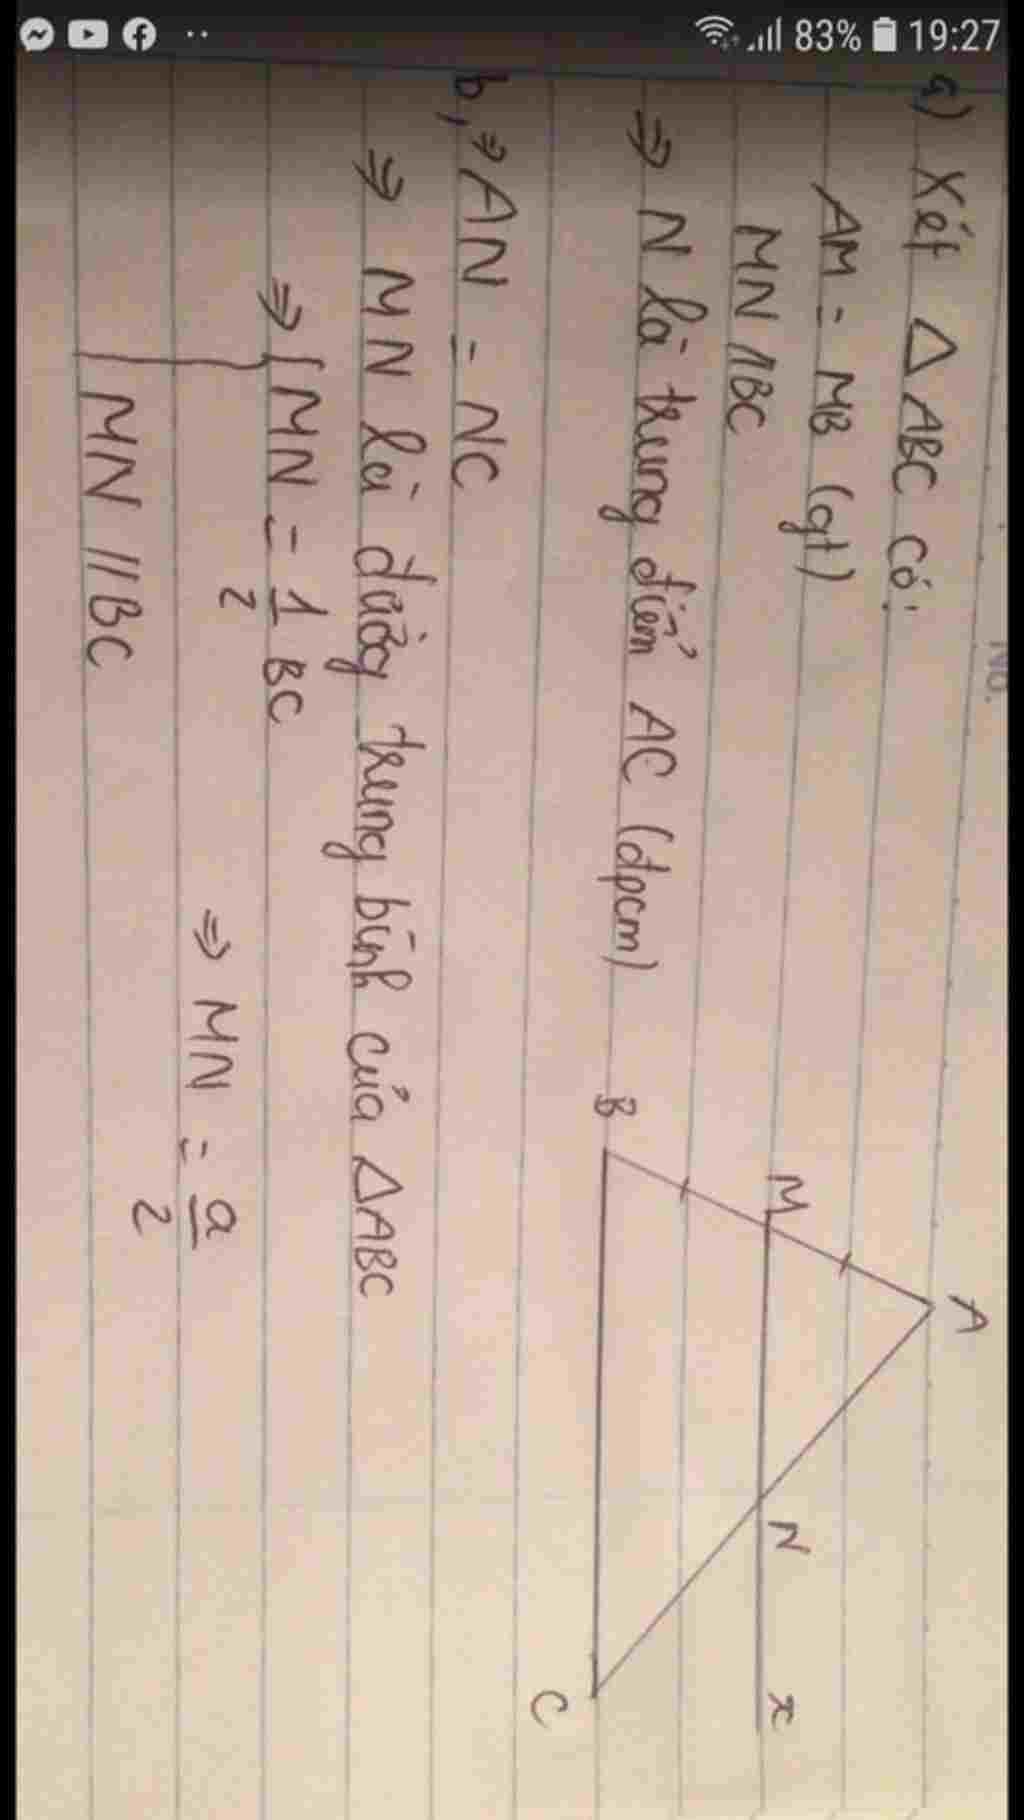 83% 19:27
No.
a) Xét △ ABC có:
AM = MB (gt)
MN // BC
⇒ N là trung điểm AC (đpcm)
A
M N x
B C
b, ⇒ AN = NC
⇒ MN là đường trung bình của △ABC
⇒ MN = 1/2 BC
⇒ MN = a/2
MN // BC